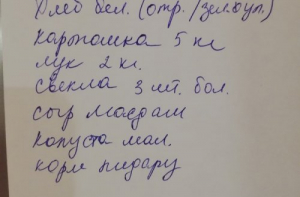 Хлеб бел. (отр./зел.уп.)
Картошка 5 кг
лук 2 кг.
свекла 3 шт. бол.
сыр Маздам
капуста мал.
корм пидару